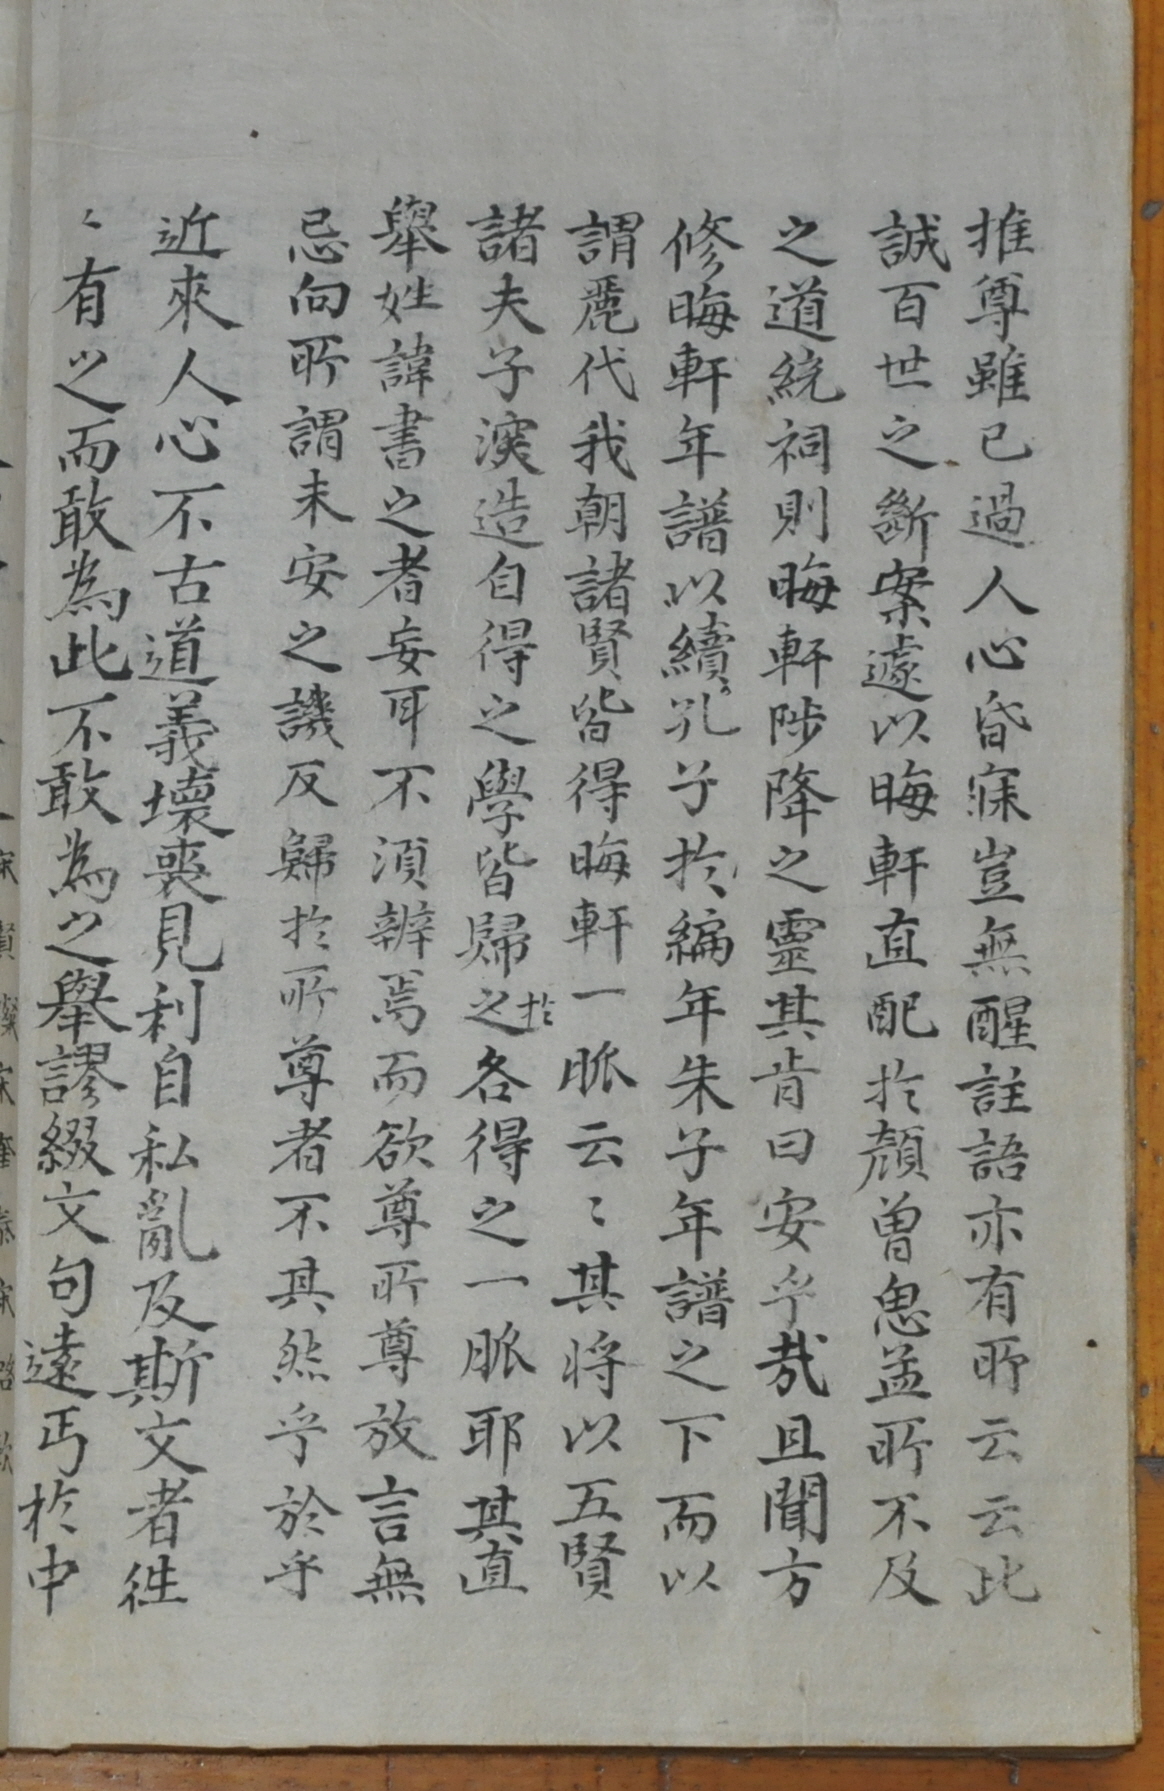 推尊雖已過人心昏寐豈無醒註語亦有所云云此
誠百世之斷案遽以晦軒直配於顔曾思孟所不及
之道統祠則晦軒陟降之靈其肯曰安乎哉且聞方
修晦軒年譜以續孔子於編年朱子年譜之下而以
謂麗代我朝諸賢皆得晦軒一脈云〻其将以五賢
諸夫子深造自得之學皆歸之於各得之一脈耶其直
舉姓諱書之者妄耳不須辨焉而欲尊所尊放言無
忌向所謂未安之譏反歸於所尊者不其然乎於乎
近來人心不古道義壞喪見利自私亂及斯文者徃
〻有之而敢為此不敢為之舉謬綴文句遠丐於中